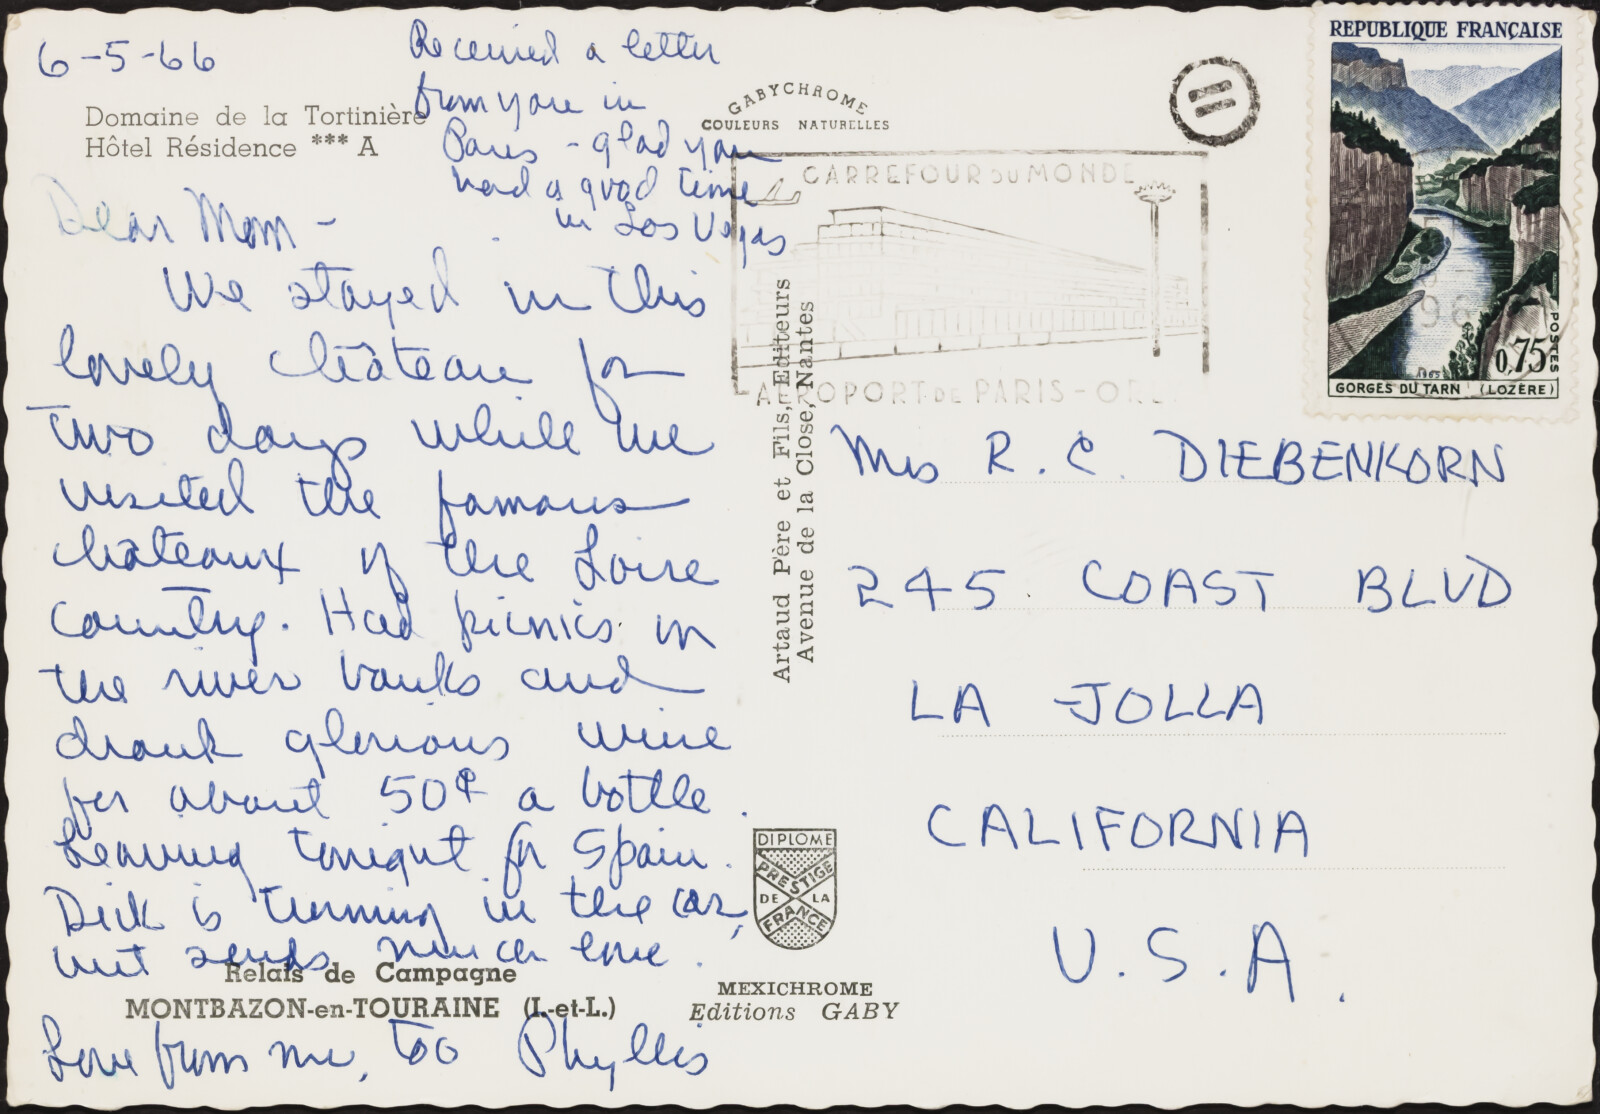 6-5-66
Received a letter
from you in
Paris - glad you
had a good time
in Las Vegas
Domaine de la Tortinière
Hôtel Résidence *** A
Dear Mom -
We stayed in this
lovely château for
two days while we
visited the famous
châteaux of the Loire
country. Had picnics on
the river banks and
drank glorious wine
for about 50¢ a bottle.
Leaving tonight for Spain.
Dick is turning in the car,
but sends much love.
Relais de Campagne
MONTBAZON-en-TOURAINE (I.-et-L.)
Love from me, too Phyllis
GABYCHROME
COULEURS NATURELLES
CARREFOUR DU MONDE
AEROPORT DE PARIS-ORL
Artaud Père et Fils, Editeurs
Avenue de la Close, Nantes
DIPLOME
PRESTIGE
DE LA
FRANCE
MEXICHROME
Editions GABY
REPUBLIQUE FRANÇAISE
POSTES
0,75
GORGES DU TARN (LOZÈRE)
Mrs R. C. DIEBENKORN
245 COAST BLVD
LA JOLLA
CALIFORNIA
U.S.A.